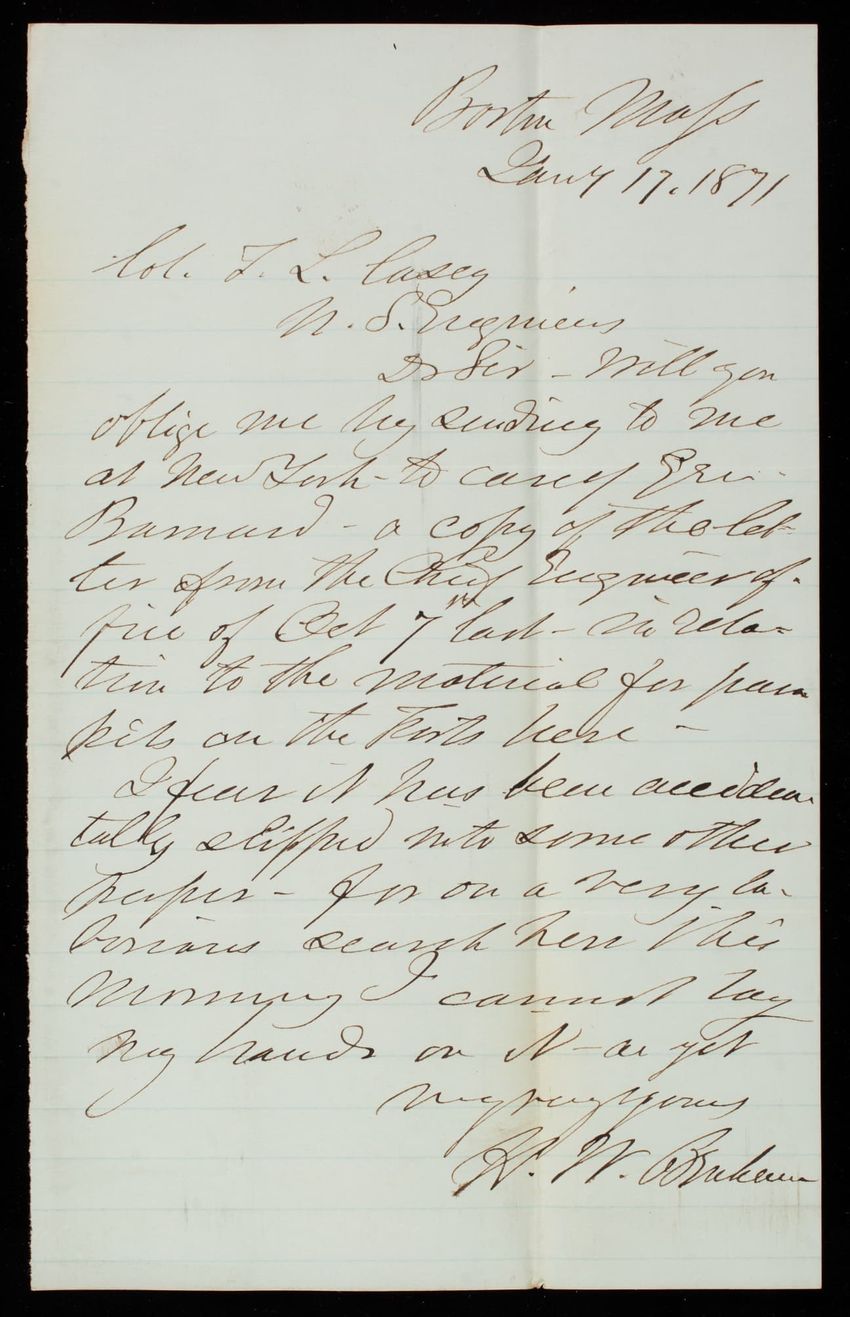 Boston Mass
Jany 17, 1871
Col. T. L. Casey
U. S. Engineers
Dr Sir - Will you
oblige me by sending to me
at New York - to care of Gen.
Barnard - a copy of the let-
ter from the Chief Engineer of-
fice of Oct 7th last - in rela-
tion to the material for para
pets on the Forts here -
I fear it has been acciden
tally slipped into some other
paper - for on a very la-
borious search here this
morning I cannot lay
my hands on it - as yet
very truly yours
H. W. Benham